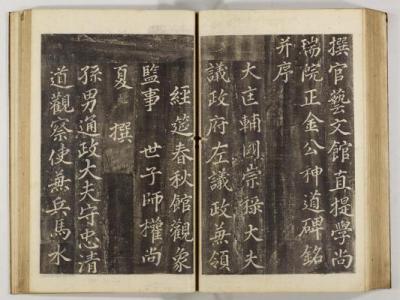 撰官藝文館直提學尚
瑞院正金公神道碑銘
并序
大匡輔國崇祿大夫
議政府左議政兼領
經筵春秋館觀象
監事 世子師權尚
夏 撰
孫男通政大夫守忠清
道觀察使兼兵馬水